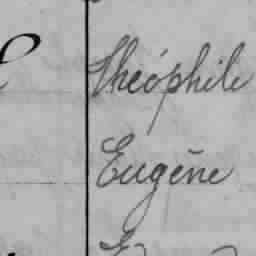 Théophile
Eugène